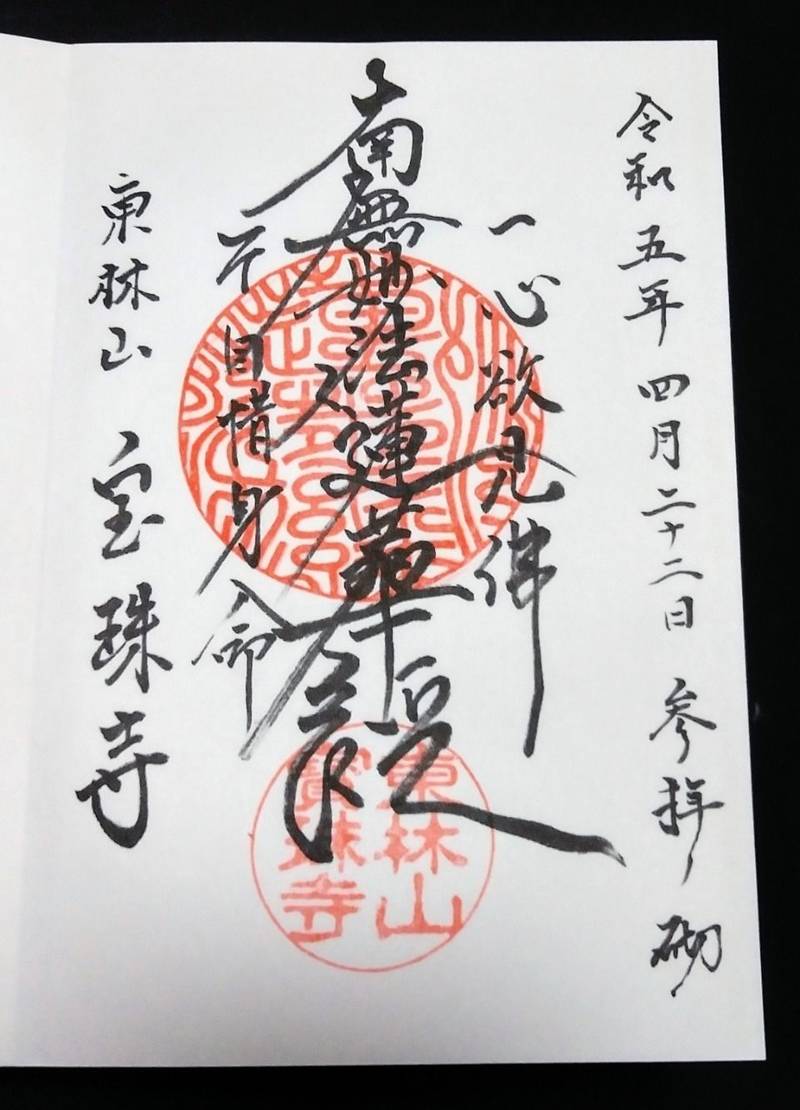 令和五年四月二十二日 参拝ノ砌
一心欲見佛
南無妙法蓮華経
不自惜身命
東林山 宝珠寺
東林山
寶珠寺